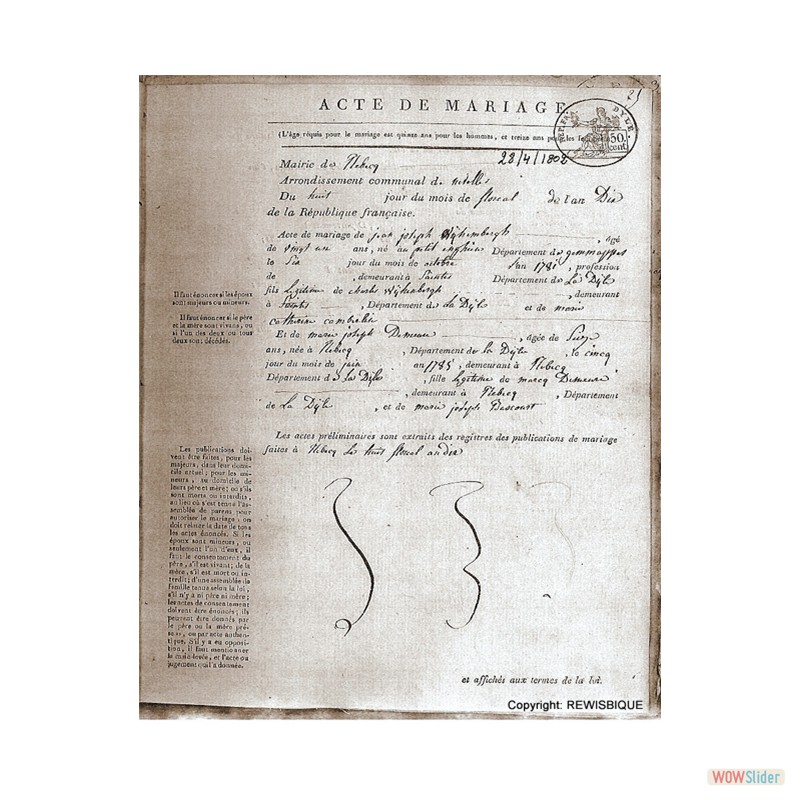 ACTE DE MARIAGE
(L'âge requis pour le mariage est quinze ans pour les hommes, et treize ans pour les femmes
50.
cent.
DYLE
28/4/1802
Mairie de Rebecq
Arrondissement communal de nivelles
Du huit jour du mois de floreal de l'an Dix
de la République française.
Acte de mariage de jean joseph , âgé
de vingt un ans, né au petit enghien Département de gemmappes
le Six jour du mois de octobre l'an 1781, profession
de , demeurant à Saintes Département de La Dÿle
fils legitime de charles , demeurant
à Saintes , Département de La Dÿle et de marie
catherine
Et de marie joseph Demeure , âgée de Seize
ans, née à Rebecq , Département de La Dÿle , le cinq
jour du mois de juin an 1785, demeurant à Rebecq
Département de La Dÿle , fille legitime de marcq Demeure
, demeurant à Rebecq , Département
de La Dÿle , et de marie joseph
Les actes préliminaires sont extraits des registres des publications de mariage
faites à Rebecq Le huit floreal an dix
Il faut énoncer si les époux
sont majeurs ou mineurs.
Il faut énoncer si le père
et la mère sont vivans, ou
si l'un des deux ou tous
deux sont décédés.
Les publications doi-
vent être faites, pour les
majeurs, dans leur domi-
cile actuel; pour les mi-
neurs, au domicile de
leurs père et mère; ou s'ils
sont morts ou interdits,
au lieu où s'est tenue l'as-
semblée de parens pour
autoriser le mariage: on
doit relater la date de tous
les actes énoncés. Si les
époux sont mineurs, ou
seulement l'un d'eux, il
faut le consentement du
père, s'il est vivant; de la
mère, s'il est mort ou in-
terdit; d'une assemblée de
famille tenue selon la loi,
s'il n'y a ni père ni mère;
les actes de consentement
doivent être énoncés; ils
peuvent être donnés par
le père ou la mère pré-
sens, ou par acte authen-
tique. S'il y a eu opposi-
tion, il faut mentionner
la main-levée, et l'acte ou
jugement qui l'a donnée.
et affichés aux termes de la loi.
Copyright: REWISBIQUE
WOWSlider